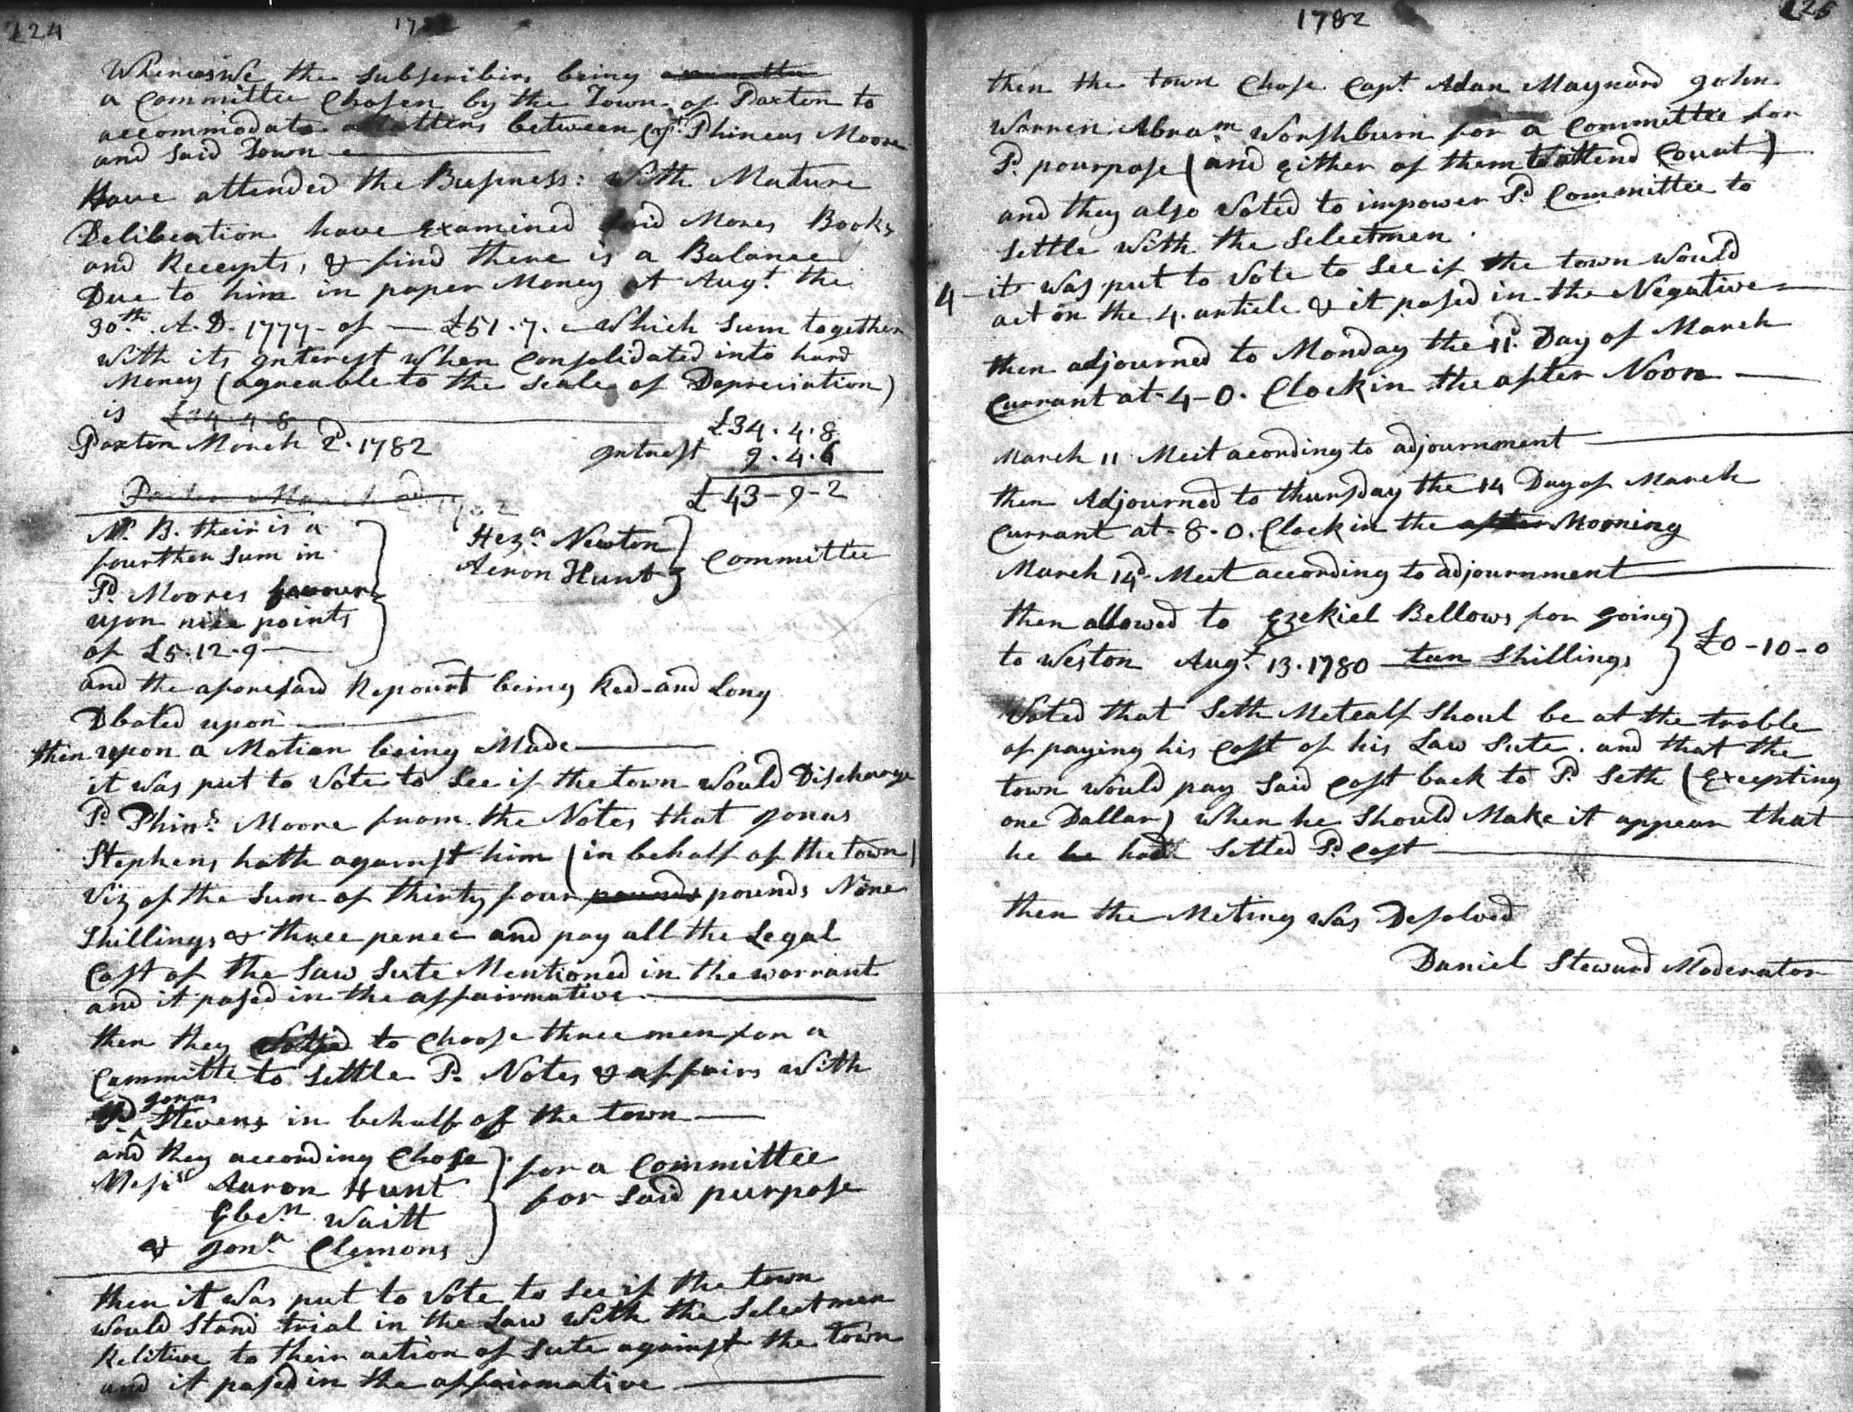 224
1782
Whereas We the Subscribers being a committee
a Committee Chosen by the Town of Paxton to
accommodate Matters between Capt. Phineas Moore
and Said Town
Have attended the Business: With Mature
Delibeation have Examined Said Mores Books
and Receipts, & find there is a Balance
Due to him in paper Money at Augt. the
30th. A.D. 1777 - of - £51.7. Which Sum together
with its Interest when Consolidated into hard
Money (agreable to the Scale of Depreciation)
is £34.4.8
£34.4.8
Paxton March 2d. 1782
Intrest 9.4.6
£43-9-2
Paxton March 2d 1782
N. B. their is a
fourther Sum in
Sd. Moores favour
upon nice points
of £5.12.9
Heza. Newton
Aeron Hunt
Committee
and the aforesaid Repourt being Red and Long
Dbated upon
then upon a Motion being Made
it was put to Vote to See if the town Would Discharge
Sd. Phins. Moore from the Notes that Jonas
Stephens hath against him (in behalf of the town)
Viz of the Sum of thirty four pounds pounds Nine
Shillings & three pence and pay all the Legal
Cost of the Law Sute Mentioned in the warrant
and it pased in the affairmative
then they Voted to Choose three men for a
Committe to Settle Sd. Notes & affairs with
Sd. Jonas Stevens in behalf of the town
and they according Chose
Messrs Aaron Hunt
Ebenr. Waitt
& Jona. Clemons
for a Committee
for Said purpose
then it was put to Vote to See if the town
would Stand trial in the Law With the Selectmen
Relitive to their action of Sute against the town
and it pased in the affairmative
1782
225
then the town Chose Capt. Adam Maynard John
Warren Abram Worshburn for a Committee for
Sd. pourpose (and Either of them to attend Court)
and they also Voted to impower Sd. Committee to
Settle with the Selectmen.
4 - it was put to Vote to See if the town would
act on the 4. article & it pased in the Negative
then adjourned to Monday the 11d. Day of March
Currant at 4-0. Clock in the after Noon
March 11 Meet acording to adjournment
then Adjourned to thursday the 14 Day of March
Currant at 8-0. Clock in the after Morning
March 14d. Meet according to adjournment
then allowed to Ezekiel Bellows for going
to Weston Augt. 13. 1780 ten Shillings
£0-10-0
Voted that Seth Metcalf Shoul be at the troble
of paying his Cost of his Law Sute. and that the
town would pay Said Cost back to Sd. Seth (Excepting
one Dallar) When he Should Make it appear that
he he had Setled Sd. Cost
then the Meting was Desolved
Daniel Steward Moderator